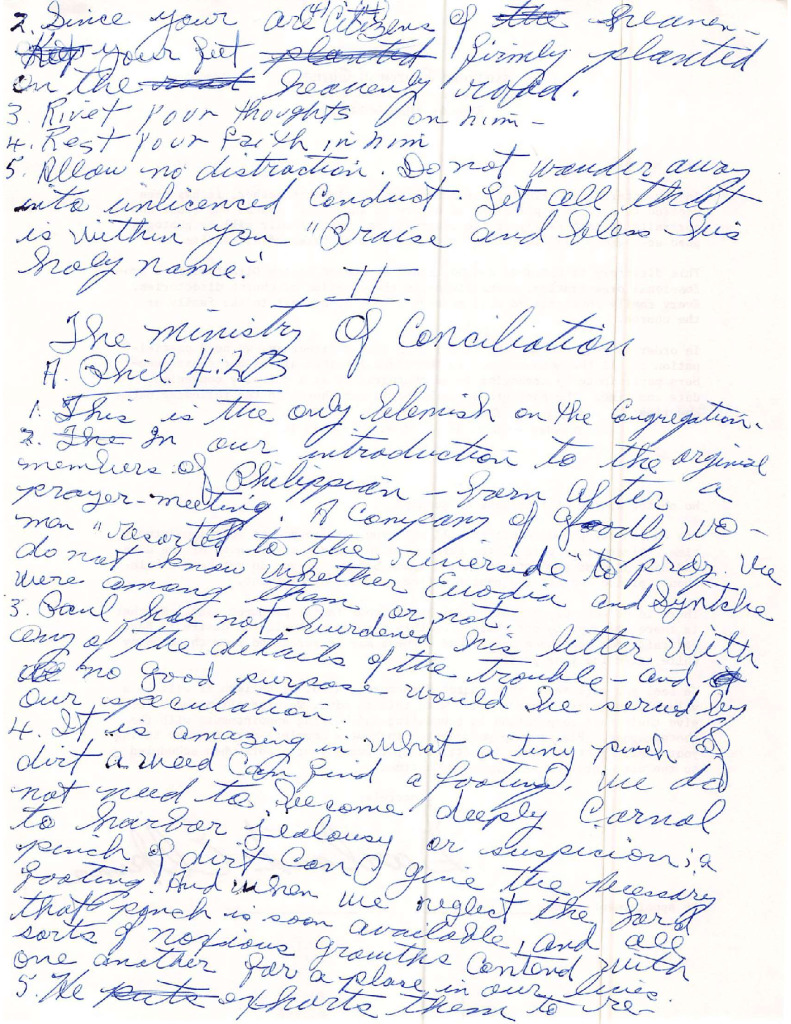 2. Since your are citizens of the Heaven-
Keep your feet planted firmly planted
on the road heavenly road.
3. Rivet your thoughts on him -
4. Rest your faith in him
5. Allow no distraction. Do not wander away
into unlicenced conduct. Let all that
is within you "Praise and bless his
holy name."
II.
The ministry Of Conciliation
A. Phil. 4:2,3
1. This is the only blemish on the congregation.
2. The In our introduction to the orginal
members of Philippian - born after a
prayer-meeting. A Company of goodly wo-
men "resorted to the riverside" to pray. We
do not know whether Euodia and Syntche
were among them or not.
3. Paul has not burdened his letter with
any of the details of the trouble - and
no good purpose would be served by
our speculation.
4. It is amazing in what a tiny pinch of
dirt a weed can find a footing. We do
not need to become deeply carnal
to harbor jealousy or suspicion; a
pinch of dirt can give the necessary
footing. And when we neglect the Lord
that pinch is soon available, and all
sorts of noxious growths contend with
one another for a place in our lives.
5. He puts exhorts them to re-